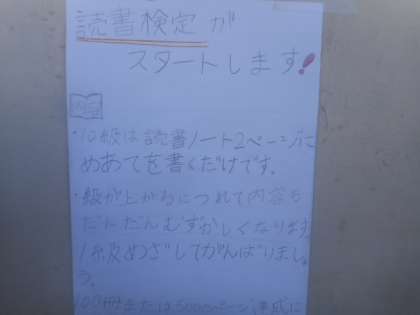 読書検定が
スタートします!
内容
・10級は読書ノート2ページに
めあてを書くだけです。
・級が上がるにつれて内容も
だんだんむずかしくなります。
1級めざしてがんばりましょ
う。
100冊または5000ページ達成に